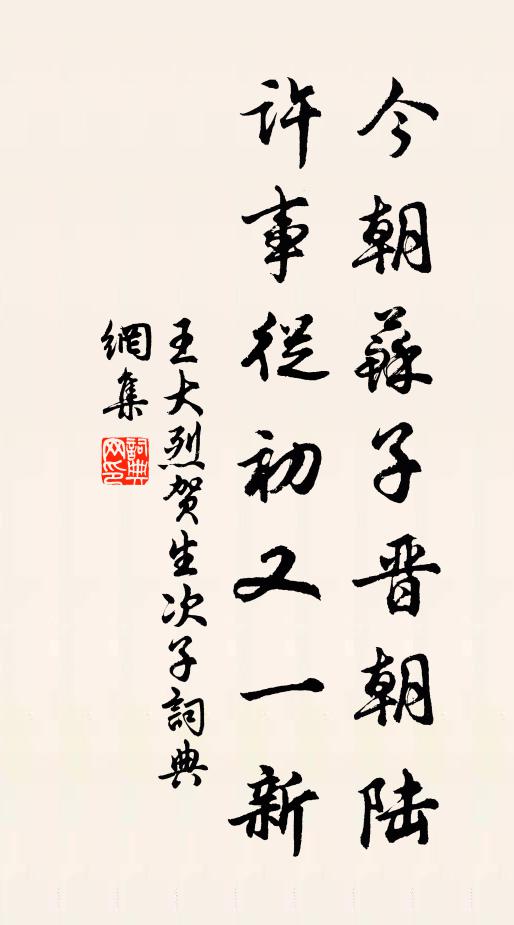 今朝蘇子晋朝陆
许事從初又一新
王大烈贺生次子詞典
網集
詞典网印